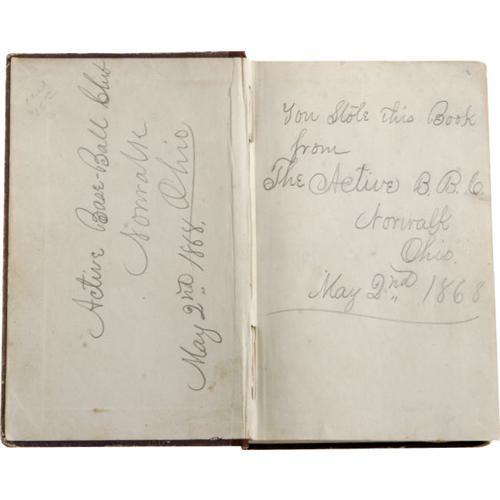 Active Base-Ball Club
Norwalk
Ohio
May 2nd 1868.
You Stole this Book
from
The Active B. B. C
Norwalk
Ohio.
May 2nd 1868